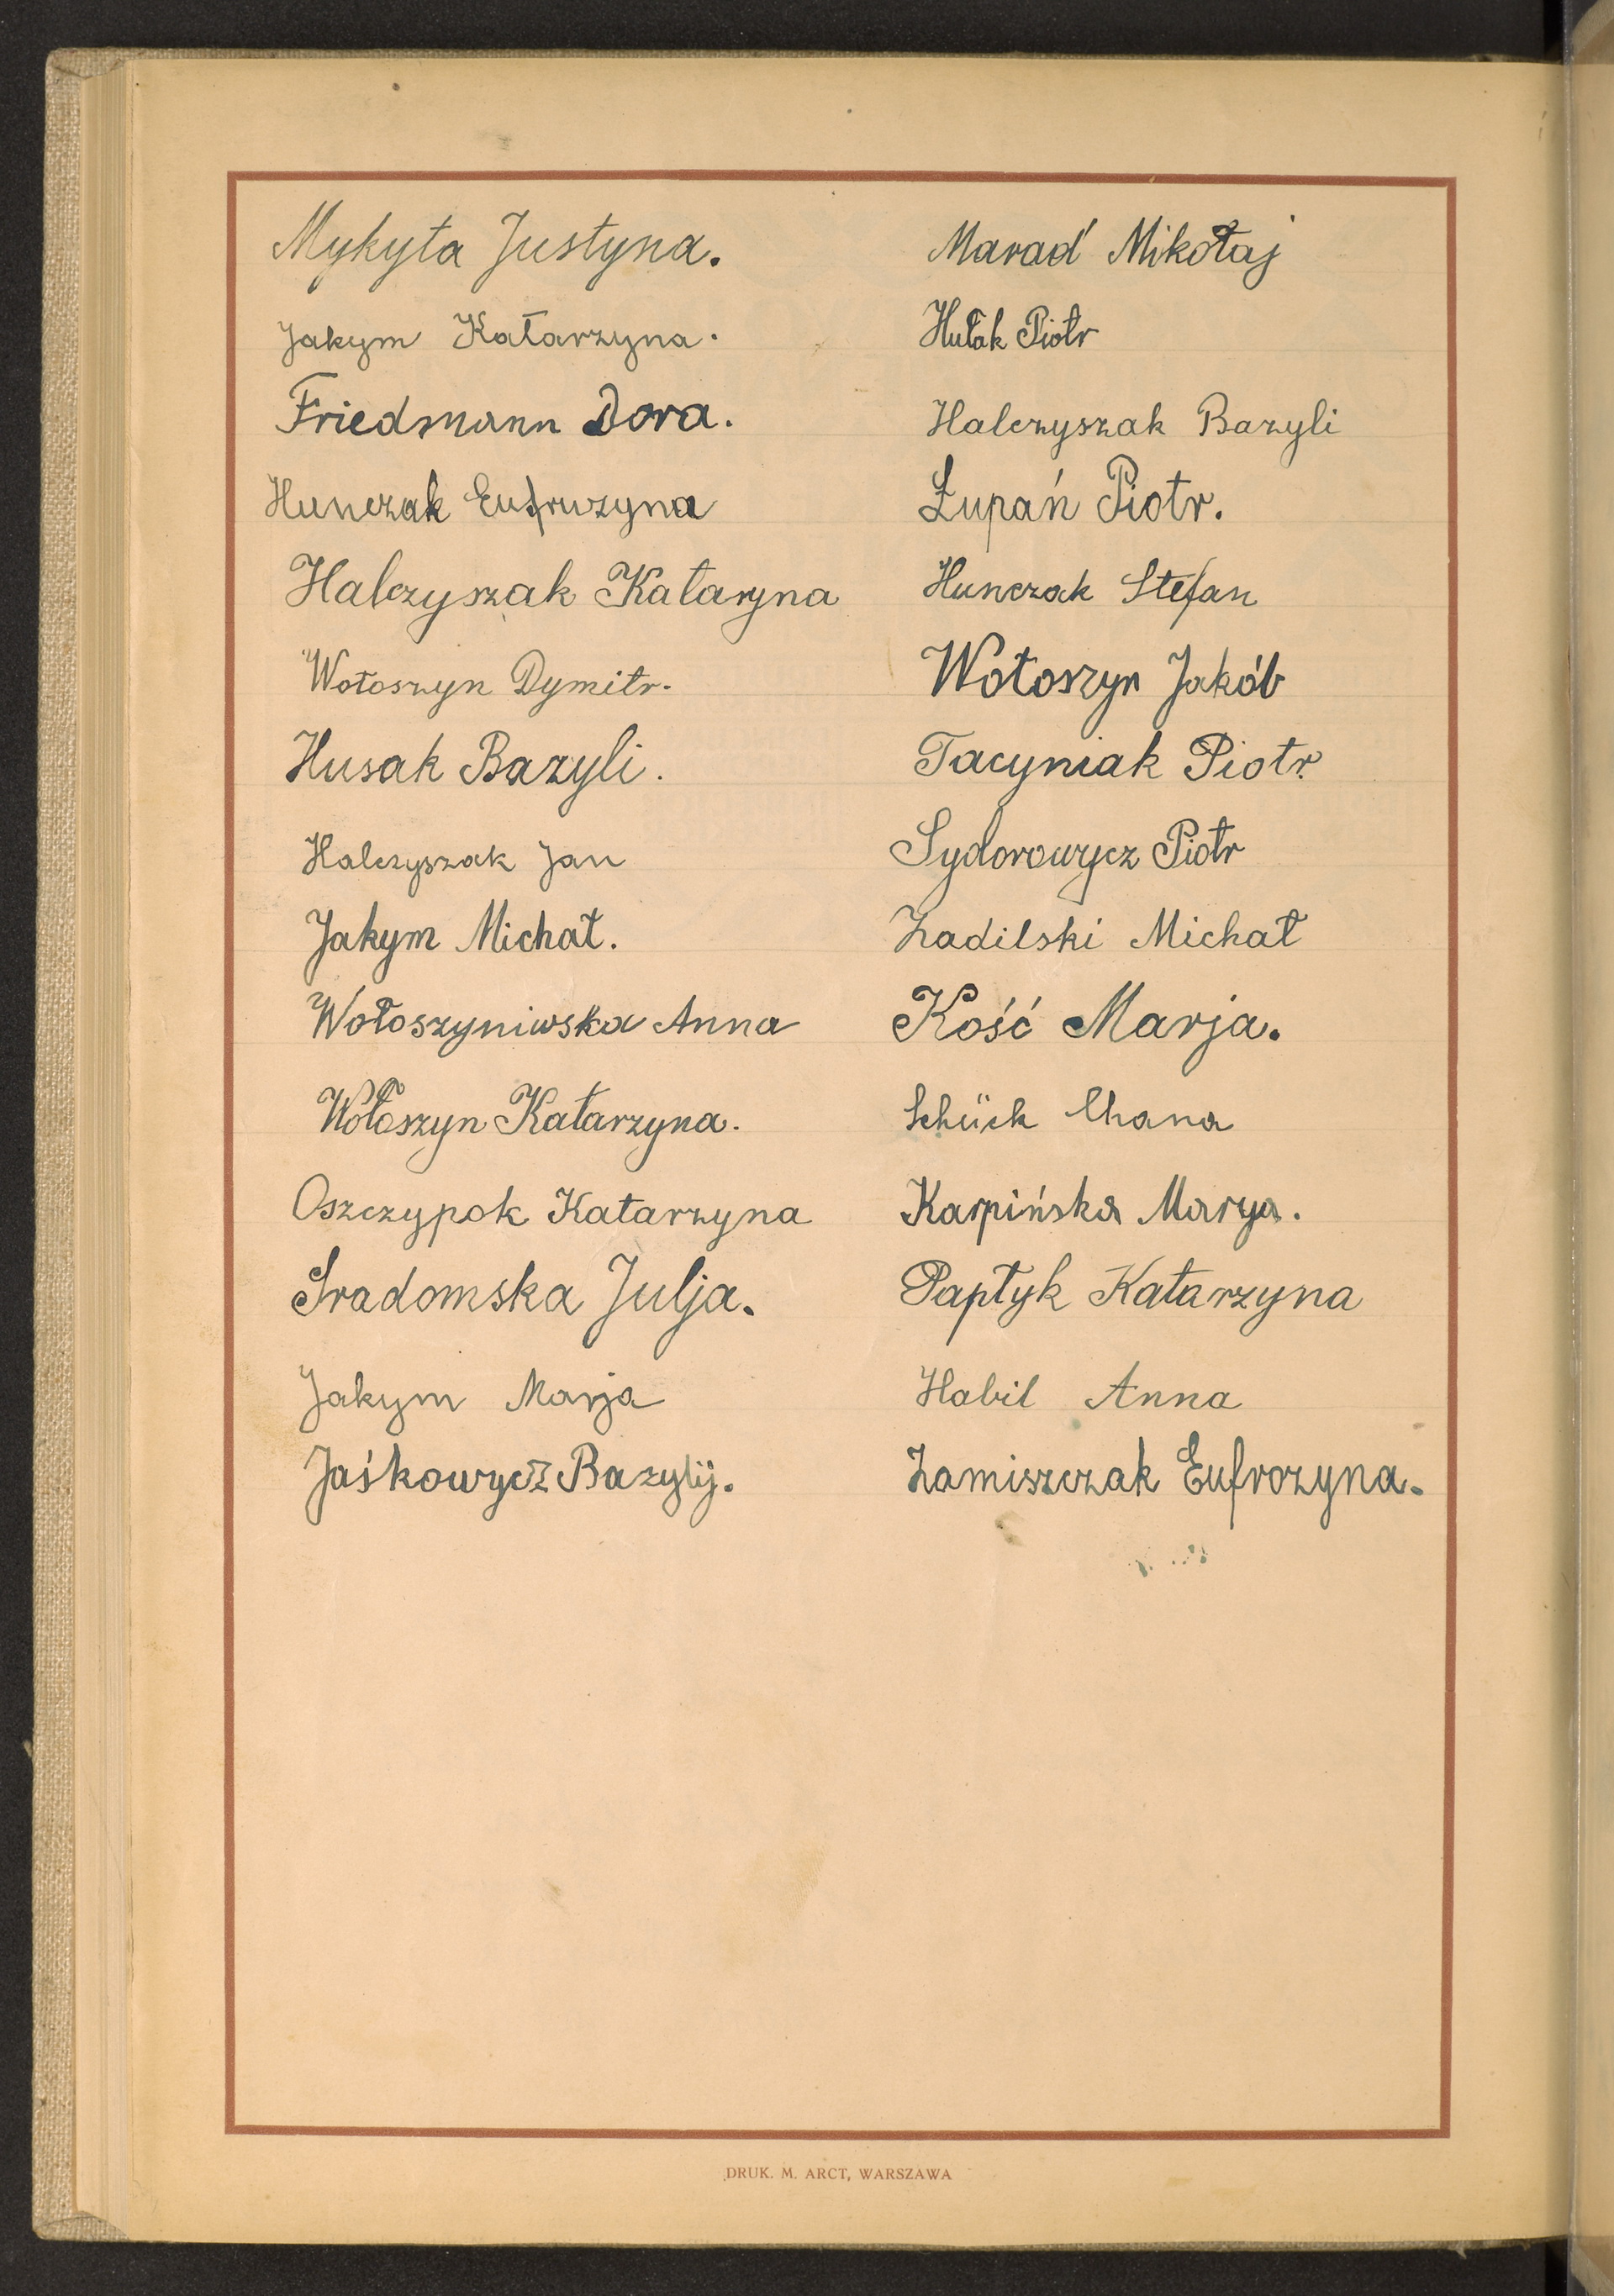 Mykyta Justyna.
Jakym Katarzyna.
Friedmann Dora.
Hunczak Eufruzyna
Halczyszak Kataryna
Wołoszyn Dymitr.
Husak Bazyli.
Halczyszak Jan
Jakym Michał.
Wołoszyniwska Anna
Wołoszyn Katarzyna.
Oszczypok Katarzyna
Sradomska Julja.
Jakym Marja
Jaśkowycz Bazylij.
Marad Mikołaj
Hułak Piotr
Halczyszak Bazyli
Łupań Piotr.
Hunczak Stefan
Wołoszyn Jakób
Tacyniak Piotr.
Sydorowycz Piotr
Zadilski Michał
Kość Marja.
Schück Chana
Karpińska Marya.
Paptyk Katarzyna
Habil Anna
Zamiszczak Eufrozyna.
DRUK. M. ARCT, WARSZAWA